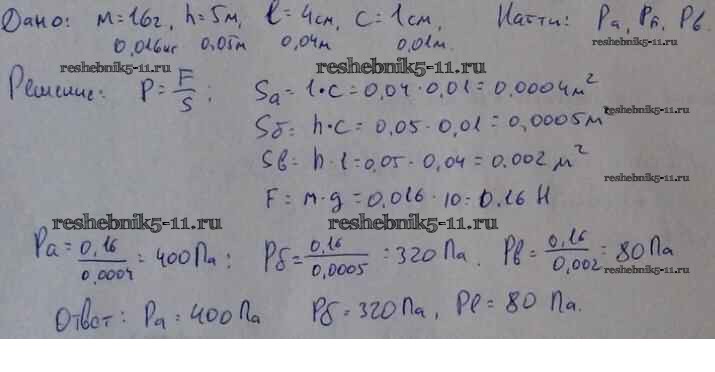 Дано: m=16г, h=5м, l=4см, c=1см, Найти: Pа, Pб, Pв.
0,016кг 0,05м 0,04м 0,01м.
reshebnik5-11.ru reshebnik5-11.ru reshebnik5-11.ru
Решение: P=F/S; Sа=l·c=0,04·0,01=0,0004м²
Sб=h·c=0,05·0,01=0,0005м²
Sв=h·l=0,05·0,04=0.002м²
reshebnik5-11.ru
F=m·g=0,016·10=0.16 Н
reshebnik5-11.ru reshebnik5-11.ru
Pа=0,16/0,0004=400Па; Pб=0,16/0,0005=320Па. Pв=0,16/0,002=80Па
reshebnik5-11.ru
Ответ: Pа=400Па Pб=320Па, Pв=80 Па.